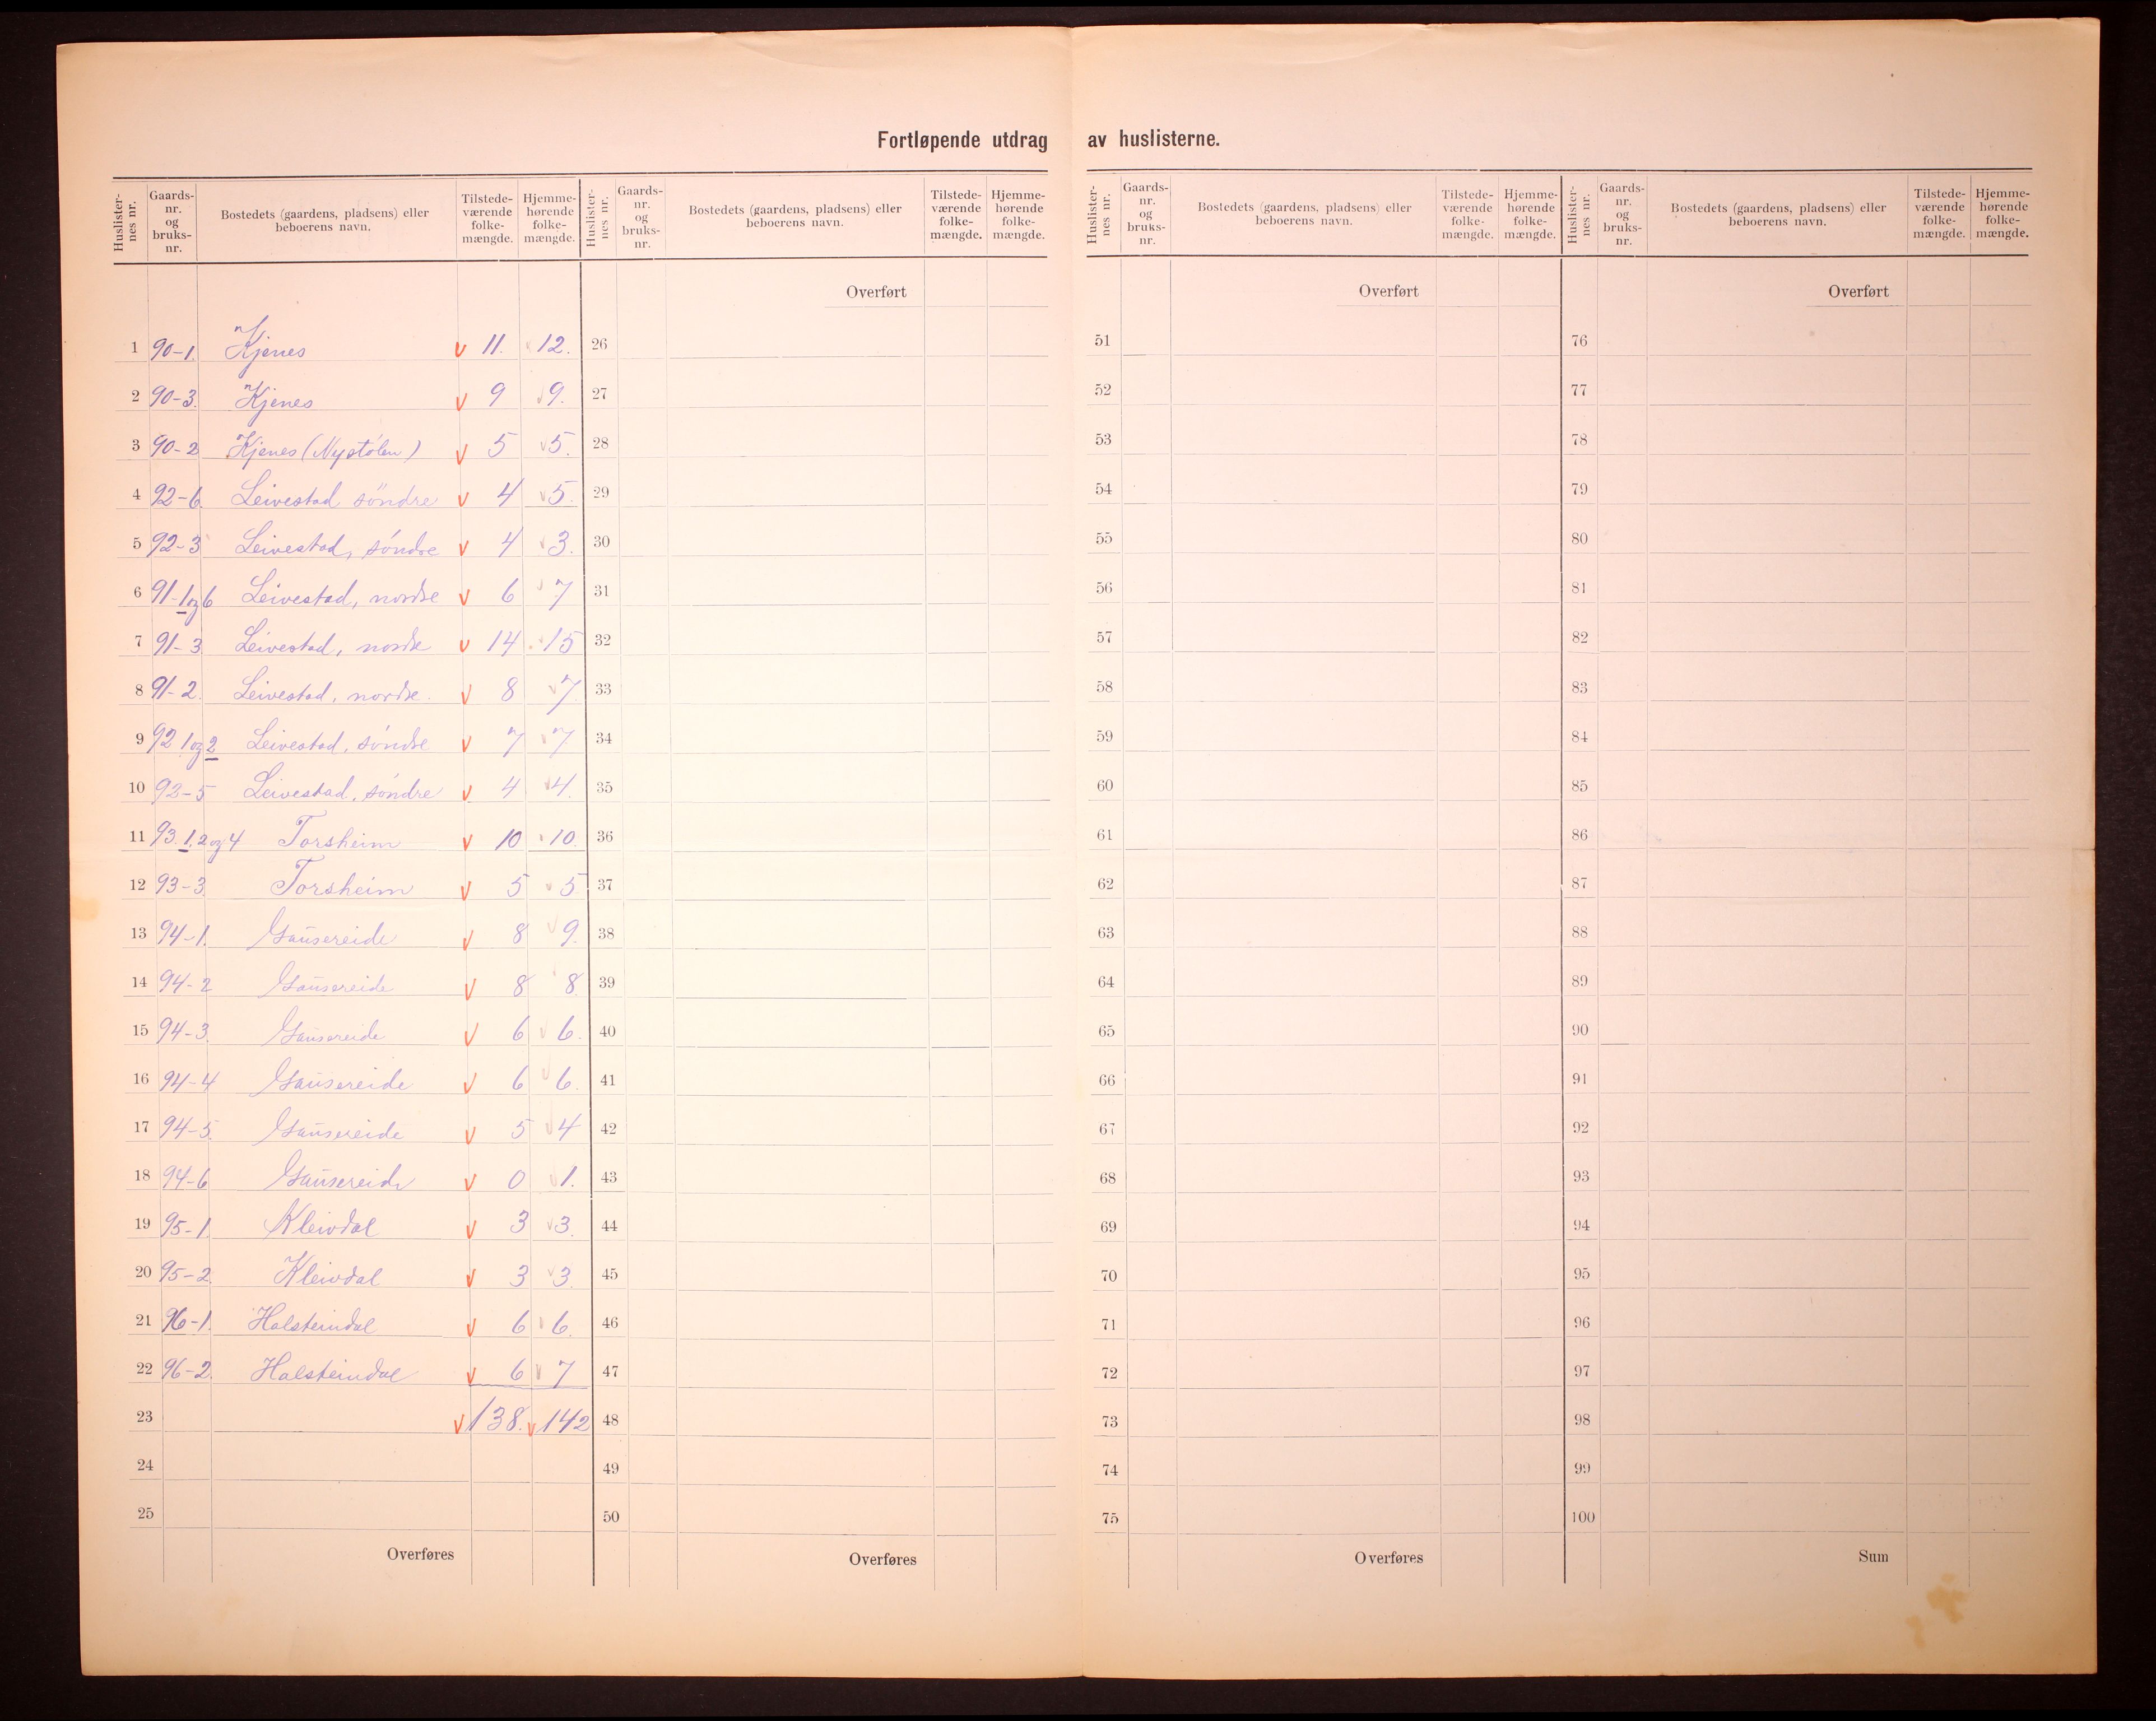 Fortløpende utdrag av huslisterne.
Huslister-nes nr. Gaards-nr. og bruks-nr. Bostedets (gaardens, pladsens) eller beboerens navn. Tilstede-værende folke-mængde. Hjemme-hørende folke-mængde.
1 90-1. Kjenes v 11. v 12.
2 90-3. Kjenes v 9 v 9.
3 90-2 Kjenes (Nystölen) v 5 v 5.
4 92-6. Leivestad söndre v 4 v 5.
5 92-3 Leivestad, söndre v 4 v 3.
6 91-1og6 Leivestad, nordre v 6 v 7
7 91-3 Leivestad, nordre v 14 15
8 91-2. Leivestad, nordre. v 8 v 7
9 92 1og2 Leivestad, söndre v 7 v 7
10 92-5 Leivestad, söndre v 4 v 4.
11 93.1.2og4 Torsheim v 10 v 10.
12 93-3. Torsheim v 5 v 5
13 94-1. Gausereide v 8 v 9.
14 94-2 Gausereide v 8 8.
15 94-3. Gausereide v 6 v 6.
16 94-4 Gausereide v 6 v 6.
17 94-5. Gausereide v 5 v 4
18 94-6 Gausereide v 0 v 1.
19 95-1. Kleivdal v 3 v 3.
20 95-2. Kleivdal v 3 v 3.
21 96-1. Halsteindal v 6 v 6.
22 96-2. Halsteindal v 6 v 7
23 v 138. v 142
24
25
Overføres
Huslister-nes nr. Gaards-nr. og bruks-nr. Bostedets (gaardens, pladsens) eller beboerens navn. Tilstede-værende folke-mængde. Hjemme-hørende folke-mængde.
Overført
26
27
28
29
30
31
32
33
34
35
36
37
38
39
40
41
42
43
44
45
46
47
48
49
50
Overføres
Huslister-nes nr. Gaards-nr. og bruks-nr. Bostedets (gaardens, pladsens) eller beboerens navn. Tilstede-værende folke-mængde. Hjemme-hørende folke-mængde.
Overført
51
52
53
54
55
56
57
58
59
60
61
62
63
64
65
66
67
68
69
70
71
72
73
74
75
Overføres
Huslister-nes nr. Gaards-nr. og bruks-nr. Bostedets (gaardens, pladsens) eller beboerens navn. Tilstede-værende folke-mængde. Hjemme-hørende folke-mængde.
Overført
76
77
78
79
80
81
82
83
84
85
86
87
88
89
90
91
92
93
94
95
96
97
98
99
100
Sum